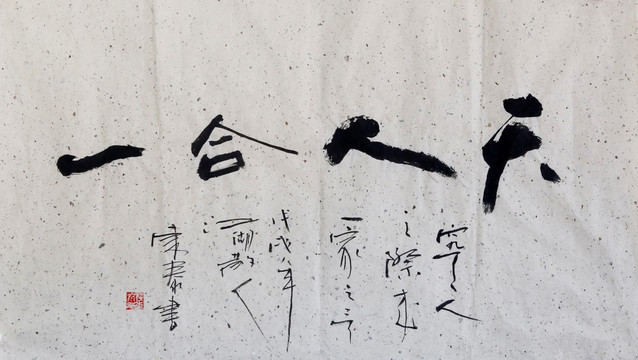 天人合一
究天人
之際成
一家之言
戊戌年
江湖散人
書